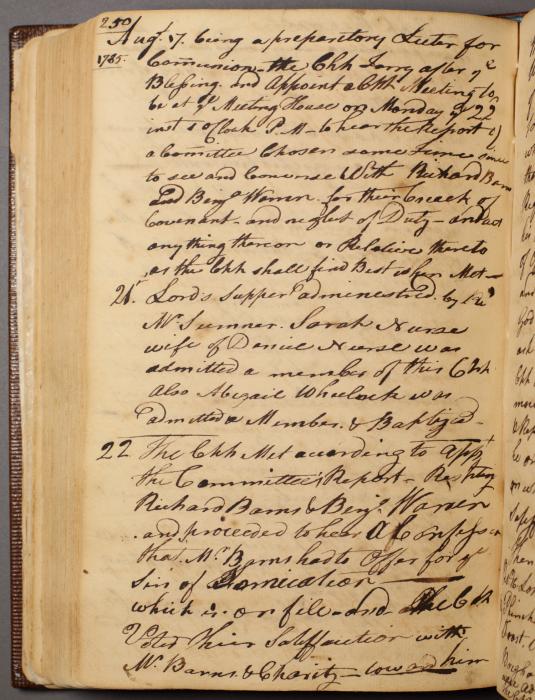 250
Augt. 17. being a preparitory Lecter for
1785. Comunion the Chh Tarry after ye
Blessing. and Appoint a Chh Meeting to
be at ye Meeting House on Monday ye 22
inst 5 oClock P.M – to hear the Report of
a Comittee Chosen some time since
to see and Converse With Richard Barns
and Benja Warrin for their breach of
Covenant – and neglect of Duty – and act
any thing thereon or Relative thereto
as the Chh shall find Best when Met –
21. Lord's Supper administred by Revd
Mr Sumner. Sarah Nurse
wife of Daniel Nurse was
admitted a member of this Chh
also Abigail Wheelock was
admitted a Member. & Baptized –
22 The Chh Met according to appt
the Committee's Report –
Richard Barns & Benja Warrin
and proceeded to hear A Confession
that Mr Barns had to Offer for ye
Sin of Fornication
which is on file – and the Chh
Voted Their Satisfaction with
Mr Barns. & Charity – toward him